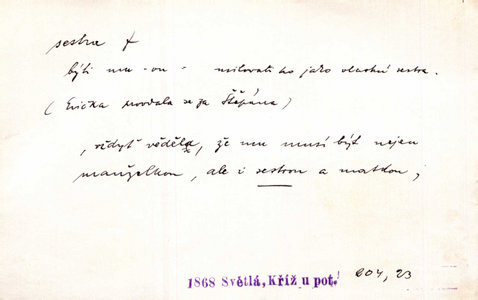 sestra f
býti mu -ou - milovati ho jako vlastní sestra.
(Evička provdala se za Štěpána)
„vždyť věděla, že mu musí být nejen
manželkou, ale i sestrou a matkou;
1868 Světlá, Kříž u pot. 604, 23